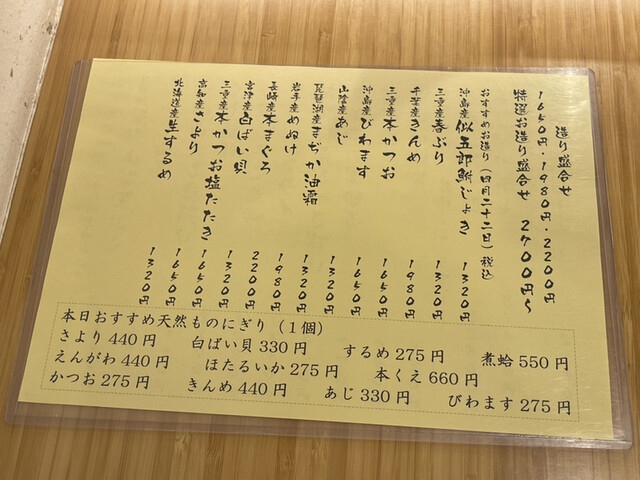 造り盛合せ
1650円・1980円・2200円
特選お造り盛合せ 2700円〜
おすすめお造り(四月二十二日)税込
沖島産 似五郎鮒じょき 1320円
三重産 春ぶり 1320円
千葉産 きんめ 1980円
三重産 本かつお 1650円
沖島産 びわます 1650円
山陰産 あじ 1320円
琵琶湖産 まぢか油霜 1320円
岩手産 めぬけ 1980円
長崎産 本まぐろ 2200円
宮津産 白ばい貝 1320円
三重産 本かつお塩たたき 1650円
高知産 さより 1650円
北海道産 生するめ 1320円
本日おすすめ天然ものにぎり(1個)
さより 440円 白ばい貝 330円 するめ 275円 煮蛤 550円
えんがわ 440円 ほたるいか 275円 本くえ 660円
かつお 275円 きんめ 440円 あじ 330円 びわます 275円